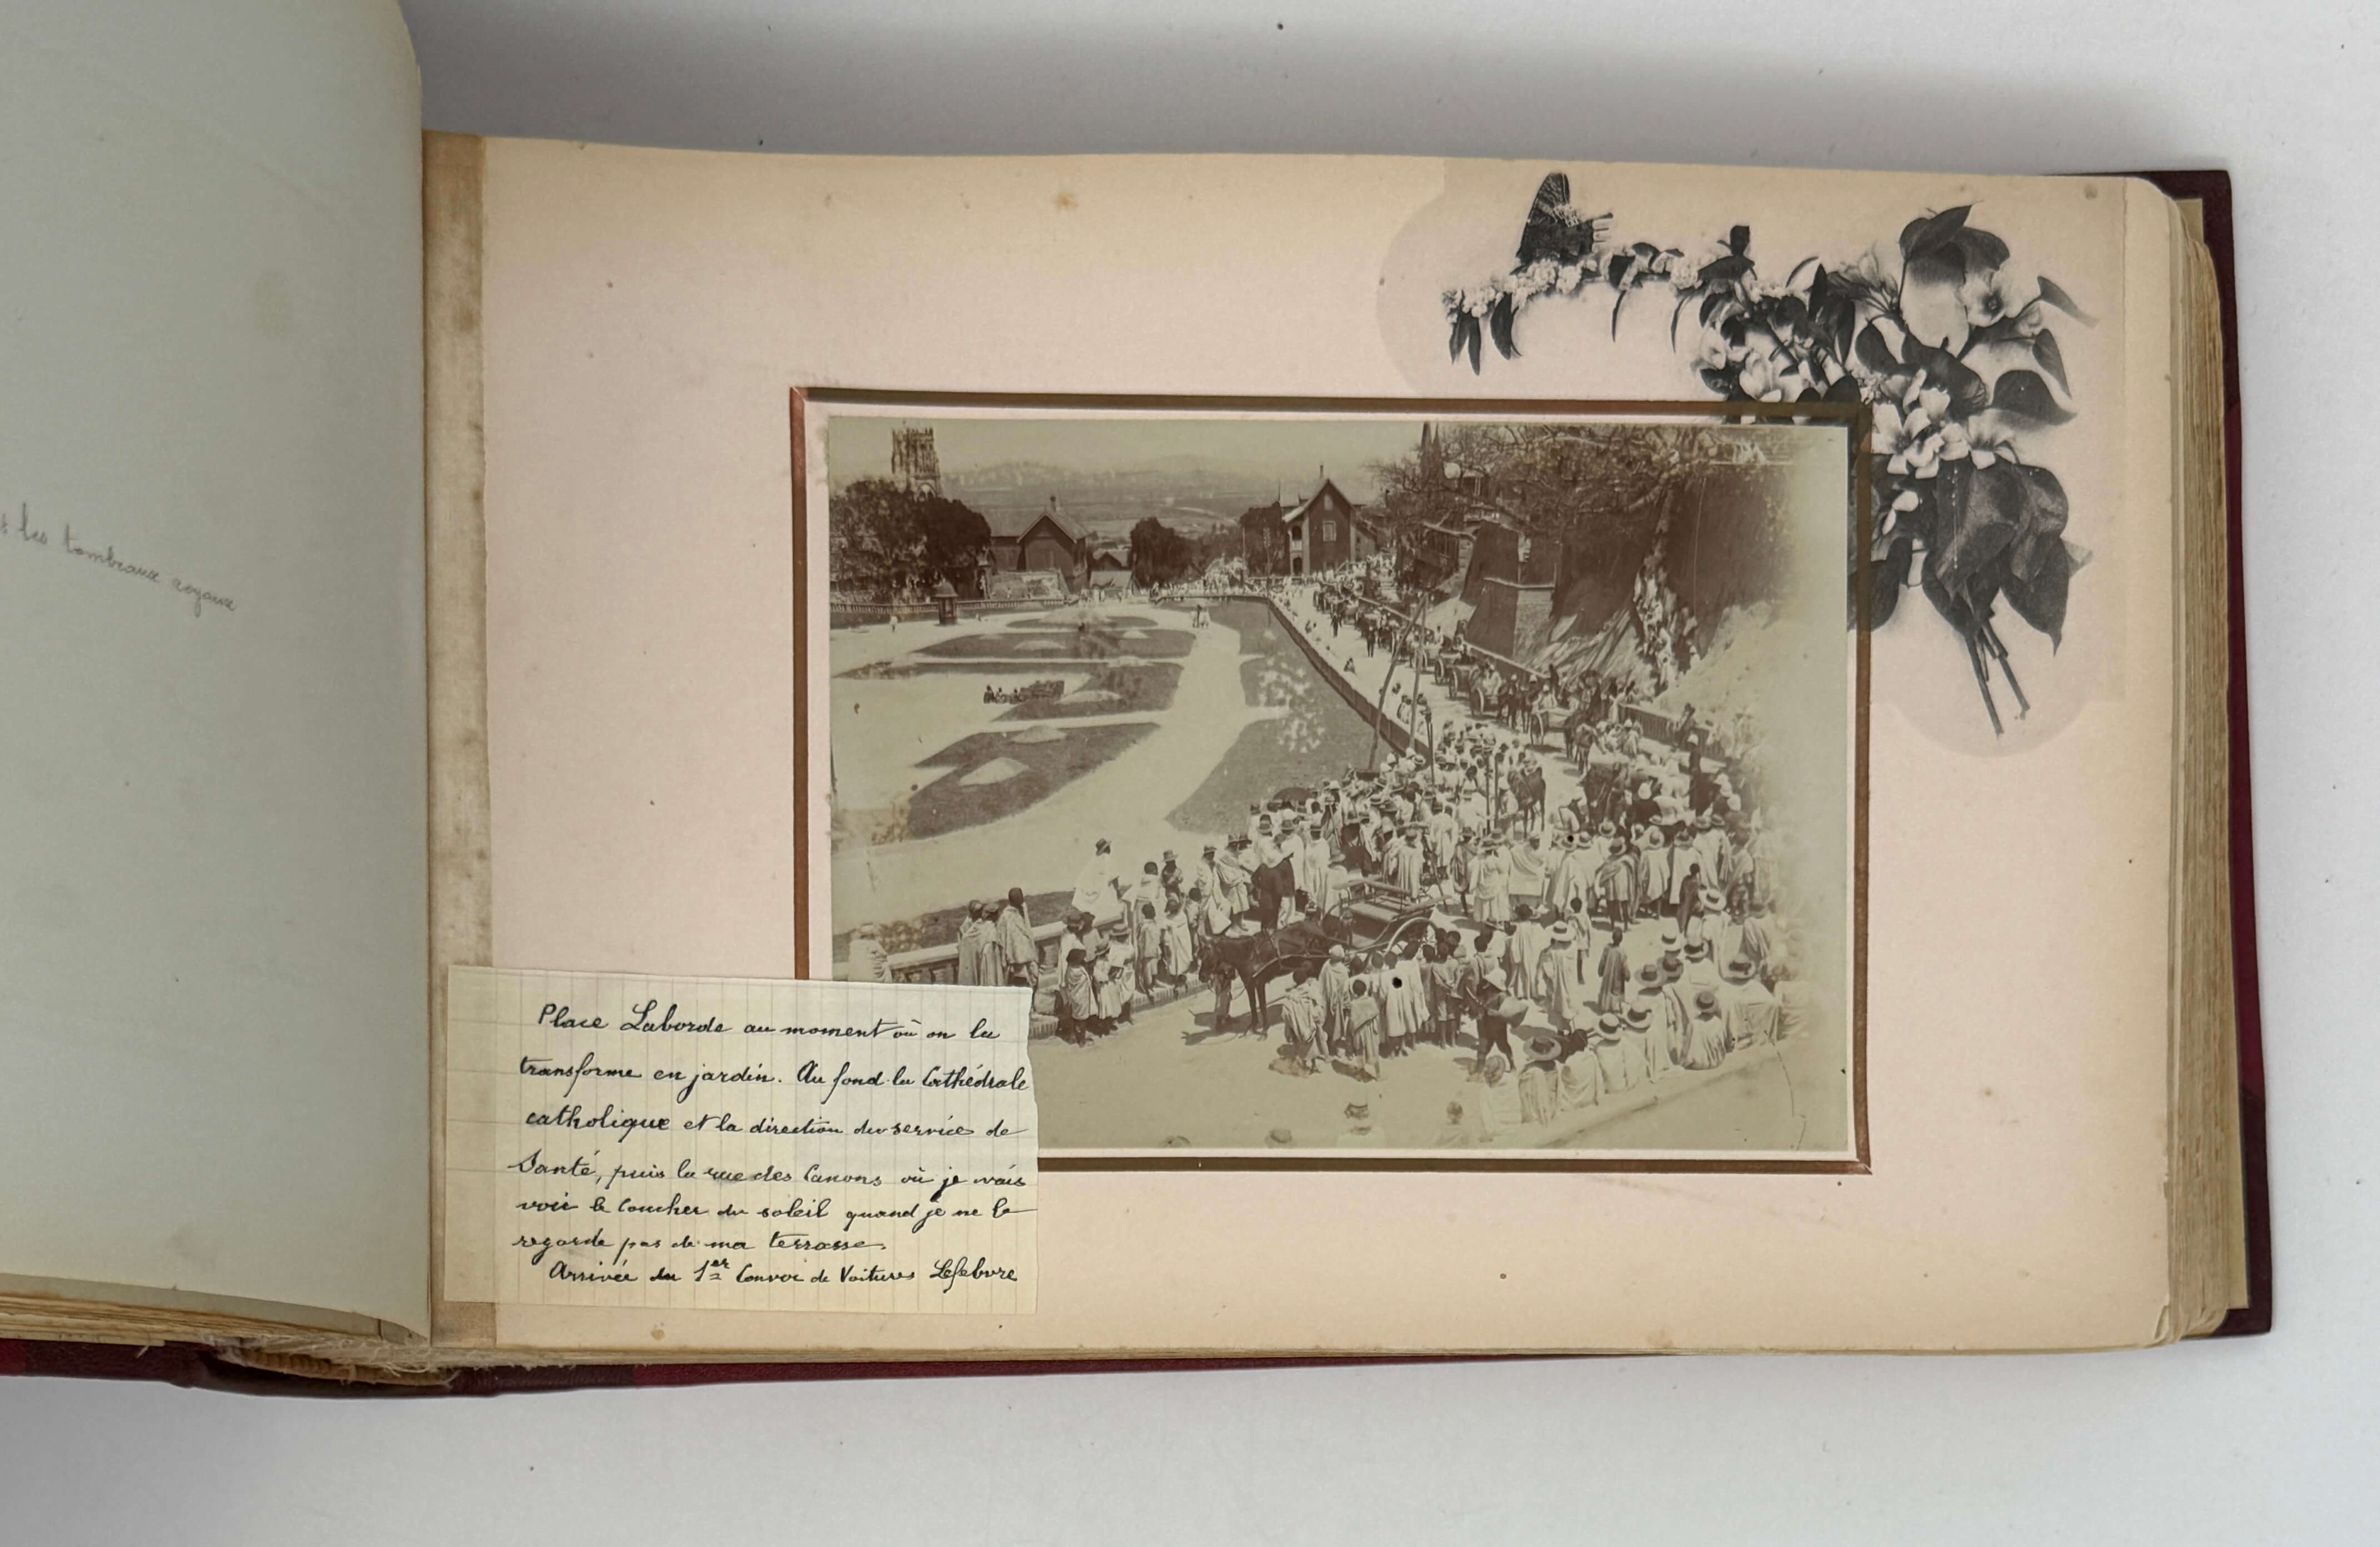 les tombeaux royaux
Place Laborde au moment où on la
transforme en jardin. Au fond la Cathédrale
catholique et la direction du service de
Santé, puis la rue des Canons où je vais
voir le coucher du soleil quand je ne le
regarde pas de ma terrasse.
Arrivée du 1er Convoi de Voitures Lefebvre